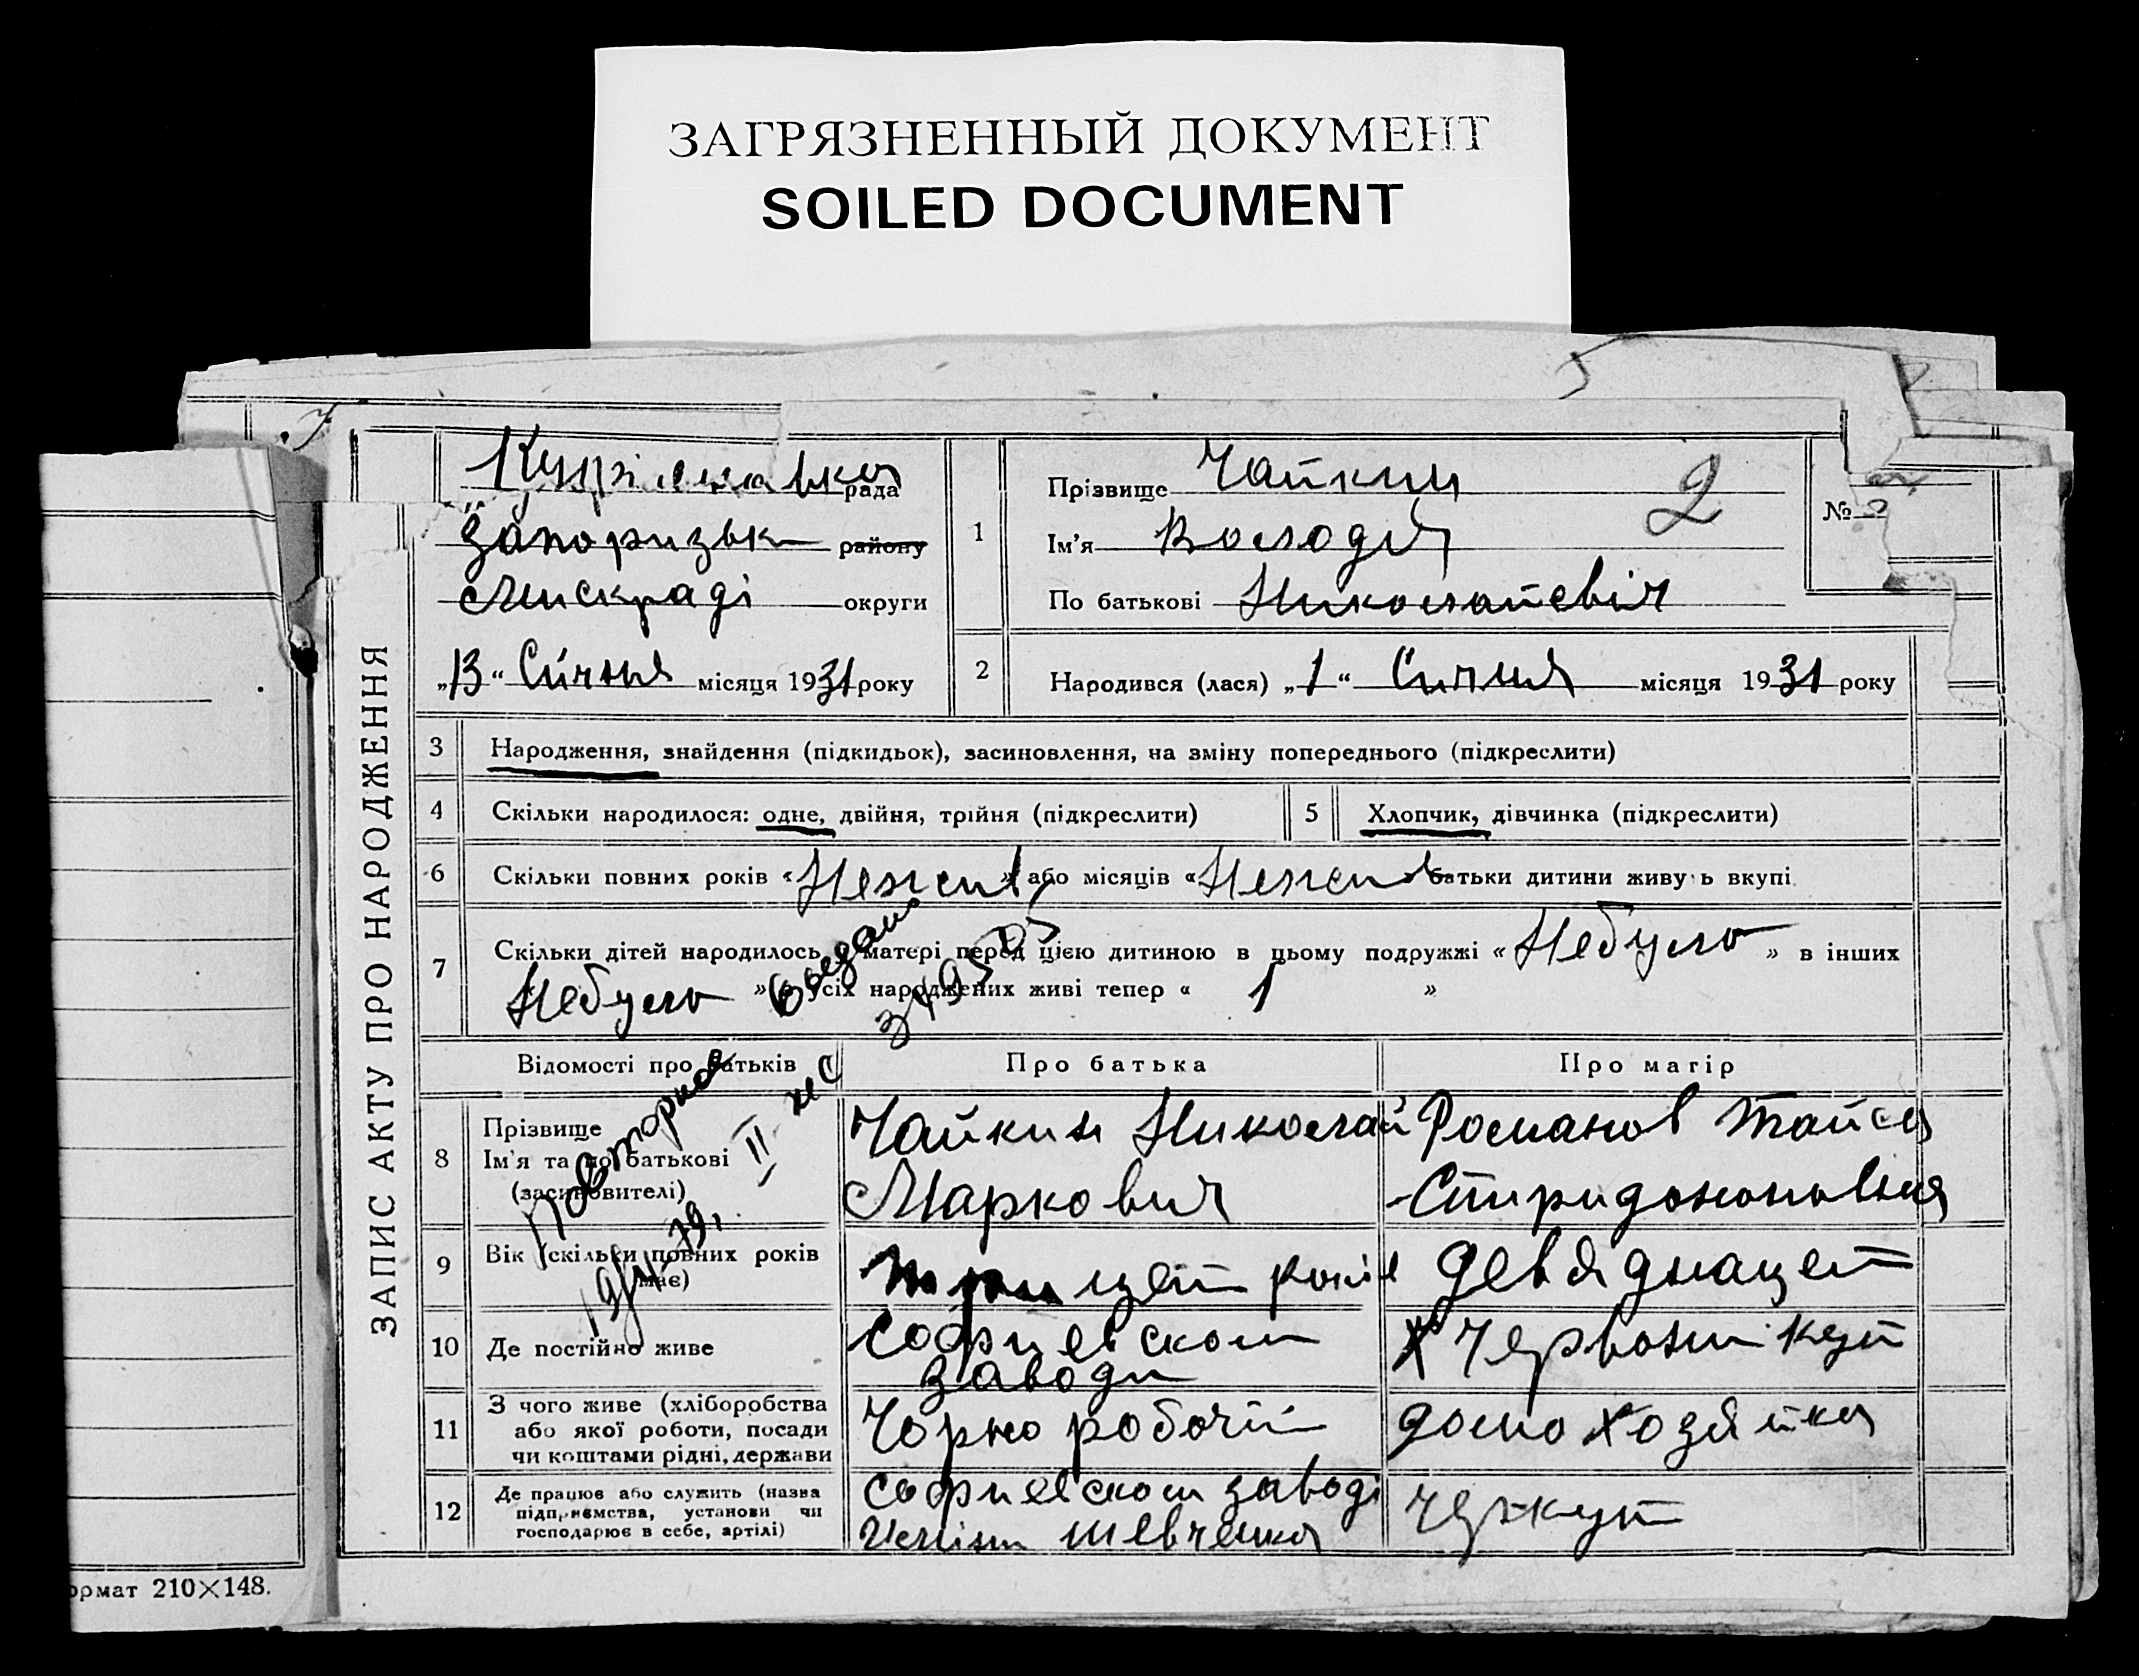 ЗАГРЯЗНЕННЫЙ ДОКУМЕНТ
SOILED DOCUMENT
ЗАПИС АКТУ ПРО НАРОДЖЕННЯ
рада
Запоризьк району
Мискраді округи
„13“ Січня місяця 1931 року
1
Прізвище Чайкин
2
Ім'я Володій
По батькові Николаевіч
№ 2
2
Народився (лася) „1“ Сичня місяця 1931 року
3 Народження, знайдення (підкидьок), засиновлення, на зміну попереднього (підкреслити)
4 Скільки народилося: одне, двійня, трійня (підкреслити)
5 Хлопчик, дівчинка (підкреслити)
6 Скільки повних років « » або місяців « » батьки дитини живуть вкупі
7 Скільки дітей народилось у матері перед цією дитиною в цьому подружжі « Небуло » в інших
« Небуло » з усіх народжених живі тепер « 1 »
Повторное
II
Відомості про батьків
Про батька
Про матір
8 Прізвище
Ім'я та по батькові
(засиновителі)
Чайкин Николай
Маркович
Романов Тайся
Спиридоноповная
9 Вік (скільки повних років
має)
трицеть років
девяднацеть
10 Де постійно живе
Софиевском
заводи
х Червони Кут
11 З чого живе (хліборобства
або якої роботи, посади
чи коштами рідні, держави
Чорно робочій
домо хозяйка
12 Де працює або служить (назва
підприємства, установи чи
господарює в себе, артілі)
Софиевском заводі
шевченка
Чер кут
формат 210×148.